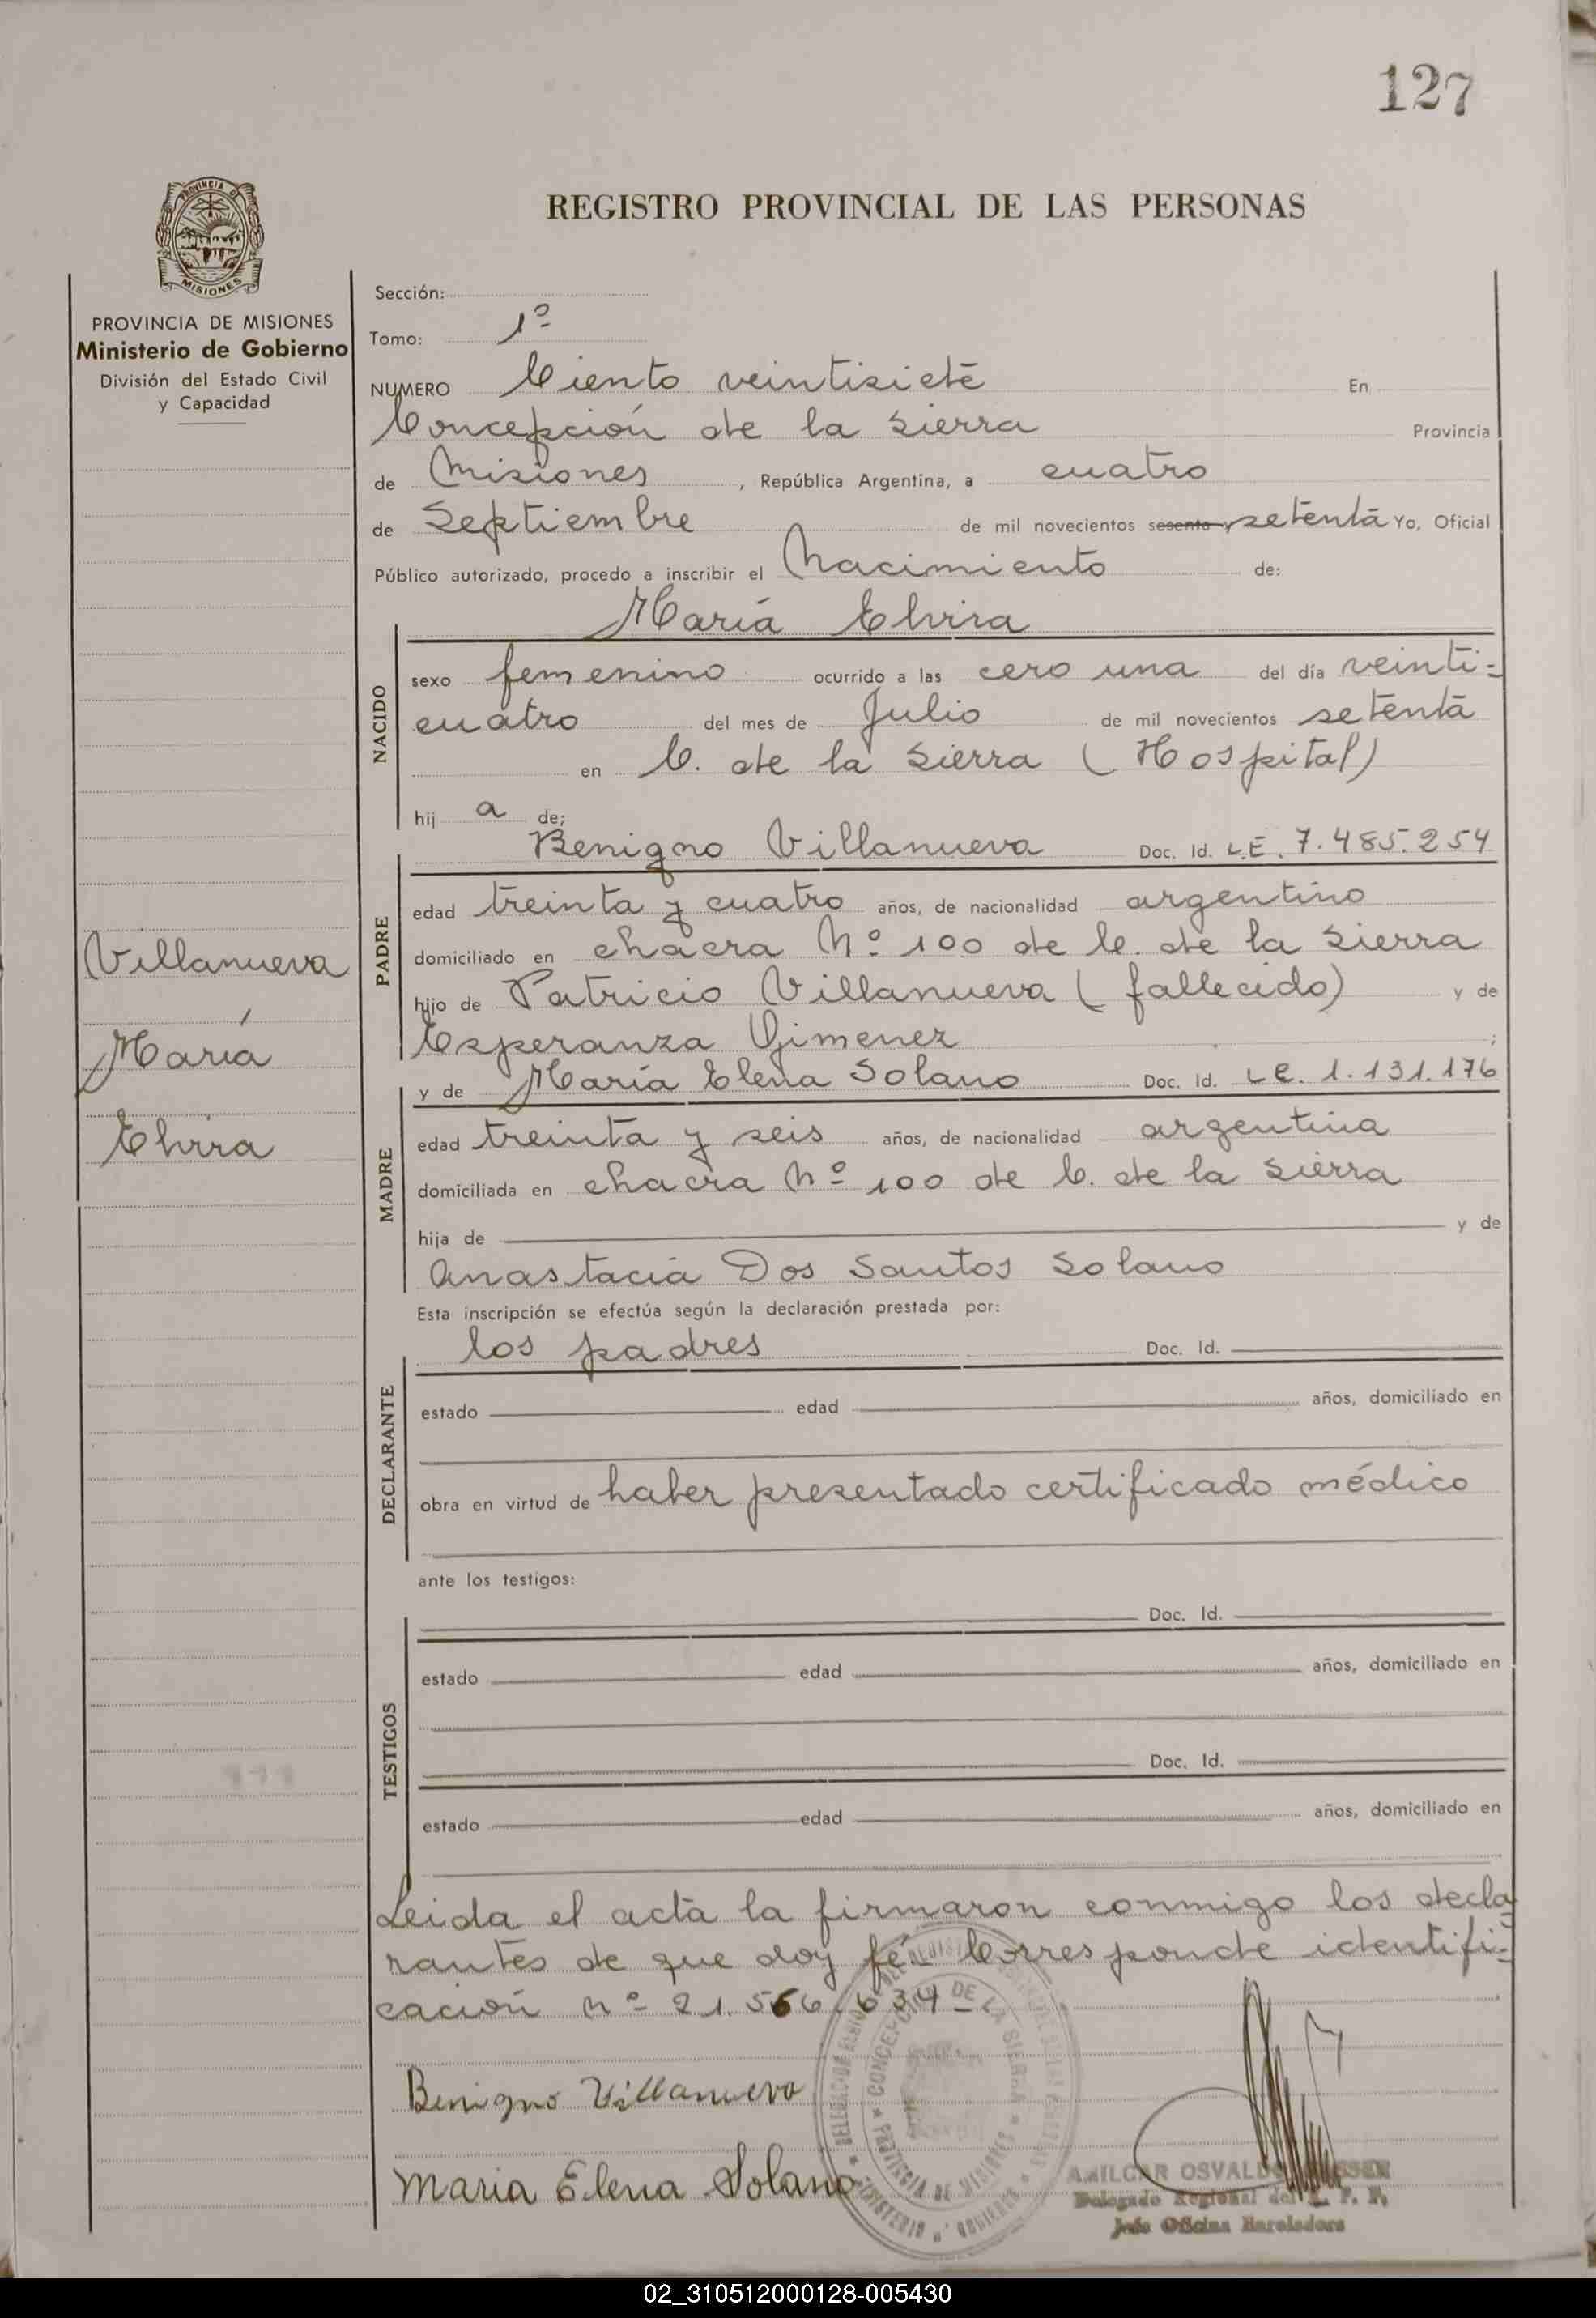 127
PROVINCIA DE
MISIONES
REGISTRO PROVINCIAL DE LAS PERSONAS
PROVINCIA DE MISIONES
Ministerio de Gobierno
División del Estado Civil
y Capacidad
Villanueva
María
Elvira
Sección:
Tomo: 1º
NUMERO Ciento veintisiete En
Concepción de la Sierra Provincia
de Misiones, República Argentina, a cuatro
de Septiembre de mil novecientos sesenta y setenta Yo, Oficial
Público autorizado, procedo a inscribir el Nacimiento de:
María Elvira
NACIDO
sexo femenino ocurrido a las cero una del día veinti-
cuatro del mes de Julio de mil novecientos setenta
en C. de la Sierra (Hospital)
hij a de;
Benigno Villanueva Doc. Id. L.E. 7.485.254
PADRE
edad treinta y cuatro años, de nacionalidad argentino
domiciliado en chacra Nº 100 de C. de la Sierra
hijo de Patricio Villanueva (fallecido) y de
Esperanza Gimenez ;
y de María Elena Solano Doc. Id. LC. 1.131.176
MADRE
edad treinta y seis años, de nacionalidad argentina
domiciliada en chacra Nº 100 de C. de la Sierra
hija de y de
Anastacia Dos Santos Solano
Esta inscripción se efectúa según la declaración prestada por:
los padres Doc. Id.
DECLARANTE
estado edad años, domiciliado en
obra en virtud de haber presentado certificado médico
ante los testigos:
Doc. Id.
TESTIGOS
estado edad años, domiciliado en
Doc. Id.
estado edad años, domiciliado en
Leida el acta la firmaron conmigo los decla-
rantes de que doy fé.- Corresponde identifi-
cación nº 21.566.634-
Benigno Villanueva
Maria Elena Solano
CONCEPCION DE LA SIERRA * PROVINCIA DE MISIONES *
AMILCAR OSVALDO
Delegado Regional del R. P. P.
Jefe Oficina Enroladora
02_310512000128-005430